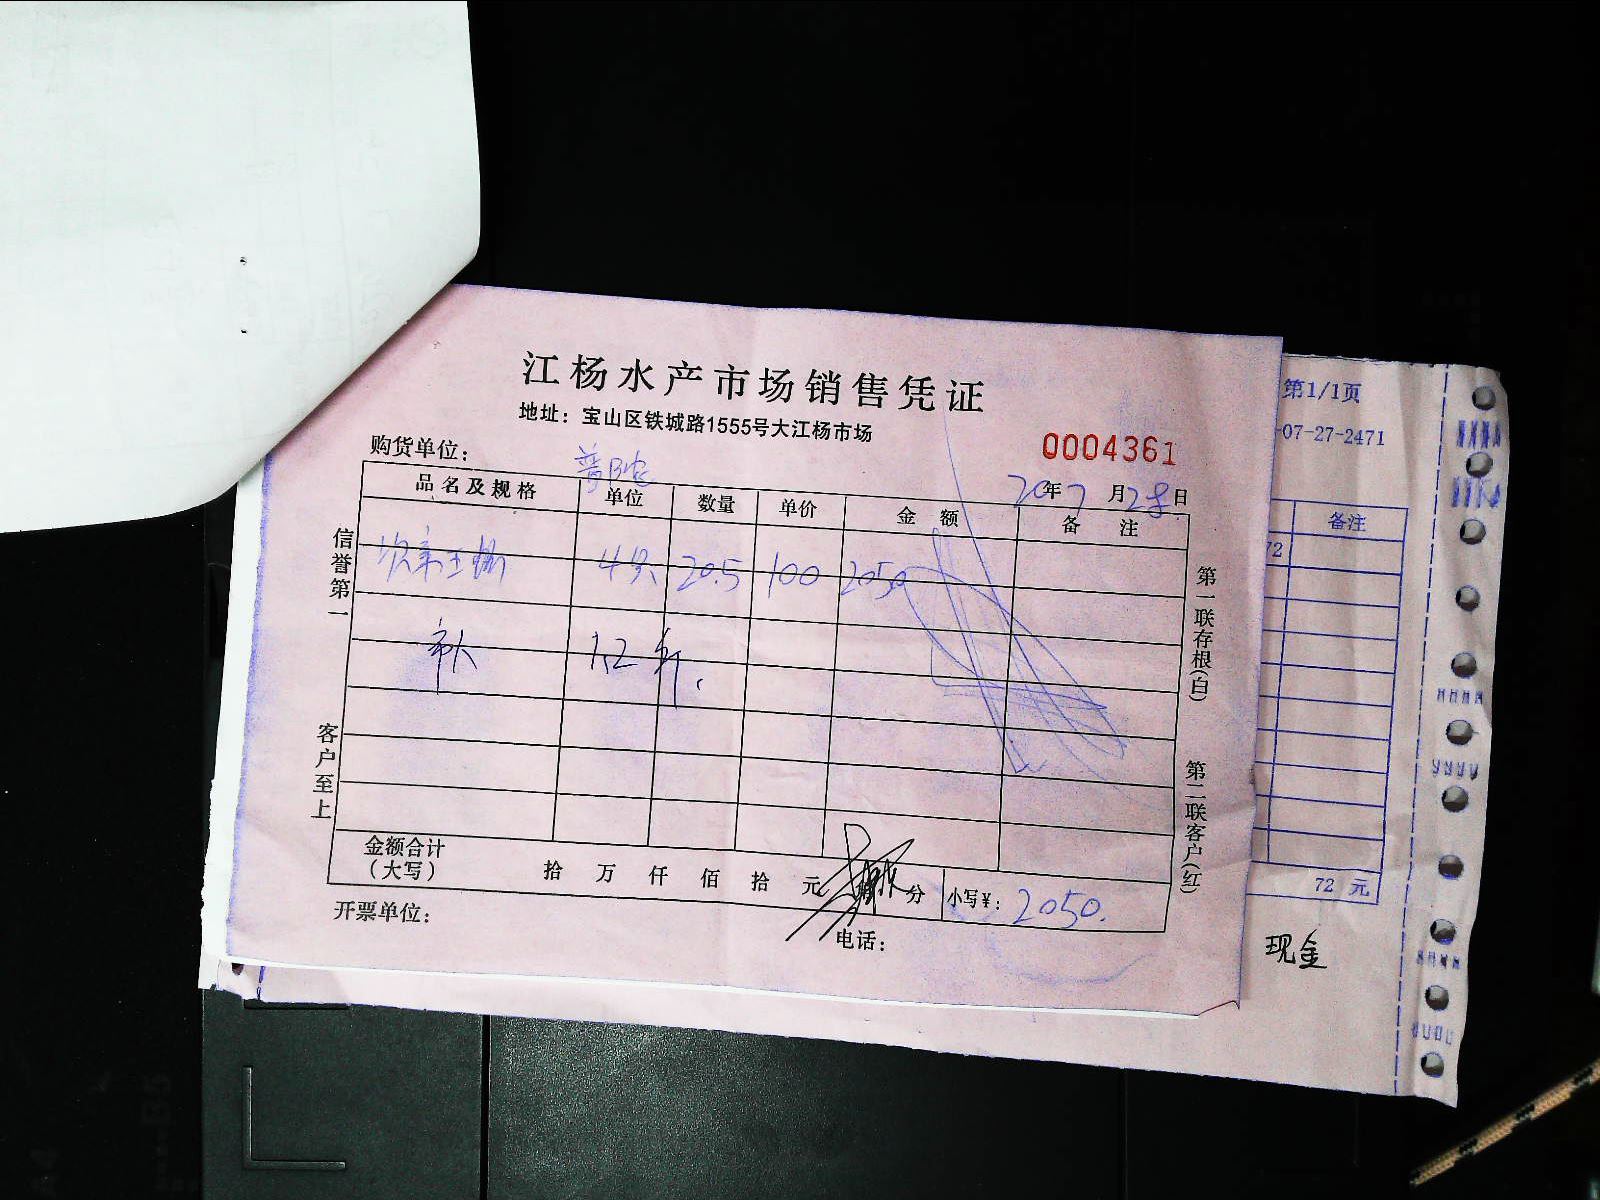 江杨水产市场销售凭证
地址：宝山区铁城路1555号大江杨市场
0004361
购货单位：
20年7月28日
品名及规格 单位 数量 单价 金额 备注
4只 20.5 100 2050
1.2 斤.
信誉第一
客户至上
第一联存根(白)
第二联客户(红)
金额合计
（大写） 拾 万 仟 佰 拾 元 分 小写￥： 2050.
开票单位： 电话：
第1/1页
-07-27-2471
备注
72
72 元
现金